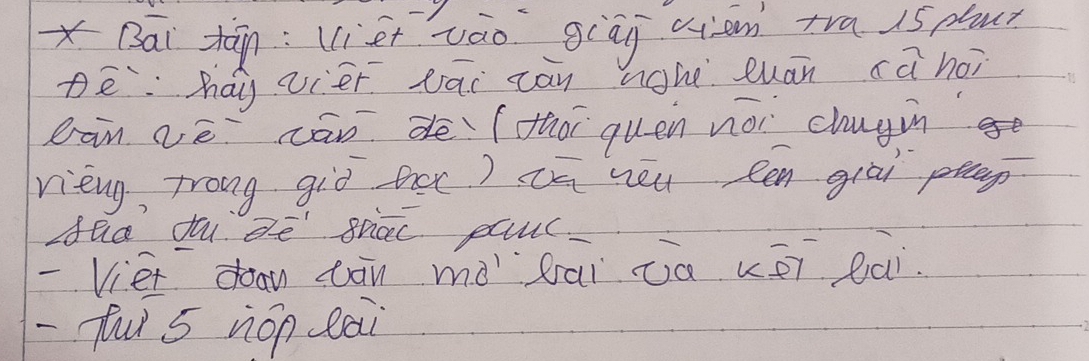 * Bài tập: Viết vào giấy kiểm tra 15 phút
Đề: hãy viết bài văn nghị luận xã hội
bàn về vấn đề (thói quen nói chuyện
riêng trong giờ học) và nêu lên giải pháp
để khắc phục
- Viết đoạn văn mở bài và kết bài.
- thứ 5 nộp bài